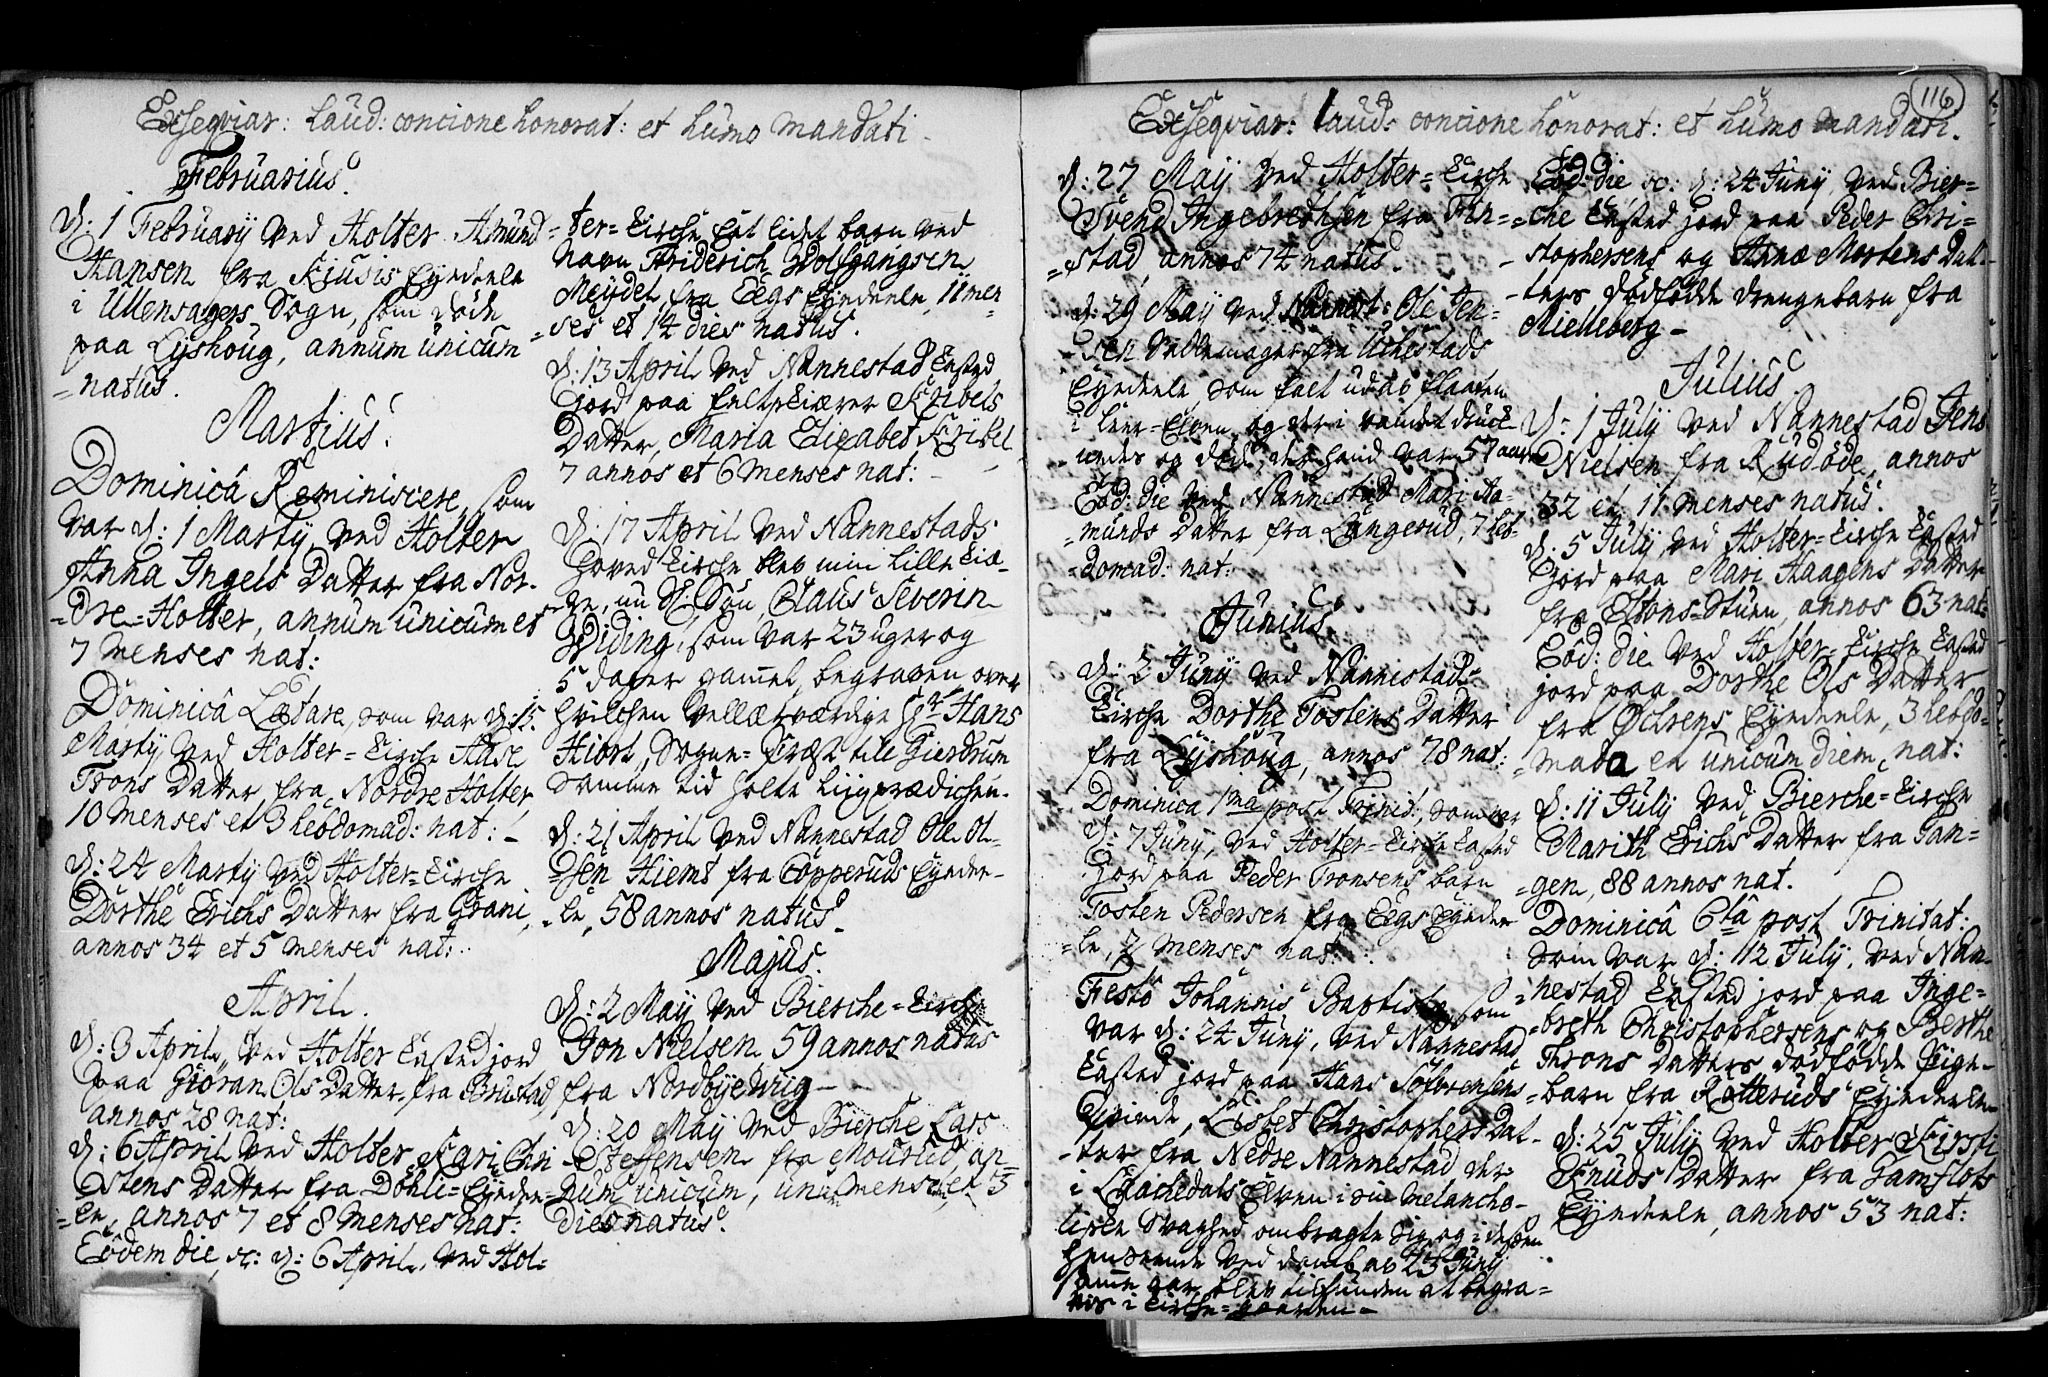 Exseqviar: laud: concione honorat: et humo mandati.
Februarius.
D: 1 Februarij ved Holter Amund
Hansen fra Kiusis Eyedeele
i Ullensagers Sogn, som døde
paa Lyshoug, annum unicum
natus.
Martius.
Dominica Reminiscere, som
var d: 1 Martij, ved Holter
Anna Ingels Datter fra Nor-
=dre=Holter, annum unicum et
7 menses nat:
Dominica Lætare, som var d: 15
Martij, ved Holter=Kirche Aase
Trons Datter fra Nordre Holter
10 menses et 3 hebdomad: nat: -
D: 24 Martij ved Holter=Kirche
Dorthe Erichs Datter fra Grani,
annos 34 et 5 menses nat:
April.
D: 3 April, ved Holter Kasted jord
paa Giøran Ols Datter fra Brustad
annos 28 nat:
D: 6 April ved Holter Kari Chri
=stens Datter fra Døhli=Eyedee-
=le, annos 7 et 8 menses nat:
Eodem die, sc: d: 6 April, ved Hol=
=ter=Kirche Et lidet barn ved
Navn Friderich Wolfgangsen
Meydel fra Eegs Eyedeele, 11 men
=ses et 14 dies natus.
D: 13 April ved Nannestad Kasted
Jord paa Feltskiærer Knibels
Datter, Maria Elisabet Knibel
7 annos et 6 menses nat: -
D: 17 April ved Nannestads
Hoved Kirche blev min lille Kiæ-
=re, nu Sl: Søn Claus Severin
Widing, som var 23 uger og
5 dager gammel, begraven over
hvilchen Vellærværdige Hr Hans
Hiort, Sogne=Præst till Gierdrum
samme tid holte liigprædichen.
D: 21 April ved Nannestad Ole Ol-
=sen Hiemt fra Copperuds Eyedee-
=le, 58 annos natus.
Majus.
D: 2 Maij ved Bierche=Kirche
Jon Nielsen 59 annos natus
fra Nordbyehuug -
D: 20 Maij ved Bierche Lars
Steffensen fra Mourud, an=
num unicum, unum mensem et 3
dies natus.
116
Exseqviar: laud: concione honorat: et humo mandati.
D: 27 Maij ved Holter=Kirche
Svend Ingebrethsen fra Fin-
=stad, annos 74 natus.
D: 29 Maij ved Nannest: Ole Jen-
=sen Sadlemager fra Uchestads
Eyedeele, som falt ud av flaaten
i Leer=Elven og der i vandet druck
=nedes og døde, der hand var 57 aar
Eod: die ved Nannestad Mari Aa-
=munds Datter fra Lungerud, 7 heb-
=domad: nat:
Junius
D: 2 Junij ved Nannestad-
Kirche Dorthe Tostens Datter
fra Lyshoug, annos 78 nat:
Dominica 1ma post Trinit:, som var
d: 7 Junij, ved Holter=Kirche Kasted
Jord paa Peder Tronsens barn
Tosten Pedersen fra Eegs Eyedee
=le, 2 menses nat:
Festo Johannis Baptistæ, som
var d: 24 Junij, ved Nannestad
Kasted jord paa Hans Sørensens
Qvinde, Lisbet Christophers Dat-
=ter fra Nedre Nannestad der
i Elven i sin Melancho-
liske Svaghed ombragte Sig, og i dessen
henseende ved domb av 23 Junij
samme aar blev tilfunden at begra=
ves i Kirche=gaarden -
Eod: die sc. d: 24 Junij ved Bier=
=che Kasted jord paa Peder Chri-
=stophersens og Anne Mortens Dat-
=ters dødfødde drengebarn fra
Mielleberg -
Julius
D: 1 July ved Nannestad Jens
Nielsen fra Rudøde, annos
32 et 11 menses natus.
D: 5 July, ved Holter=Kirche Kasted
Jord paa Mari Haagens Datter
fra Eltons=stuen, annos 63 nat:
Eod: die ved Holter=Kirche Kasted
jord paa Dorthe Ols Datter
fra Øchrens Eyedeele, 3 hebdo-
=mada et unicum diem nat:
D: 11 July ved Bierche=Kirche
Marith Erichs Datter fra Tan=
=gen, 88 annos nat.
Dominica 6ta post Trinitat:
som var d: 12 July, ved Nan-
=nestad Kasted jord paa Inge=
=breth Christophersens og Berthe
Throns Datters dødfødde Pige-
=barn fra Rotteruds Eyedeele
D: 25 July ved Holter Kirsti
Knuds Datter fra Gamflots
Eyedeele, annos 53 nat: